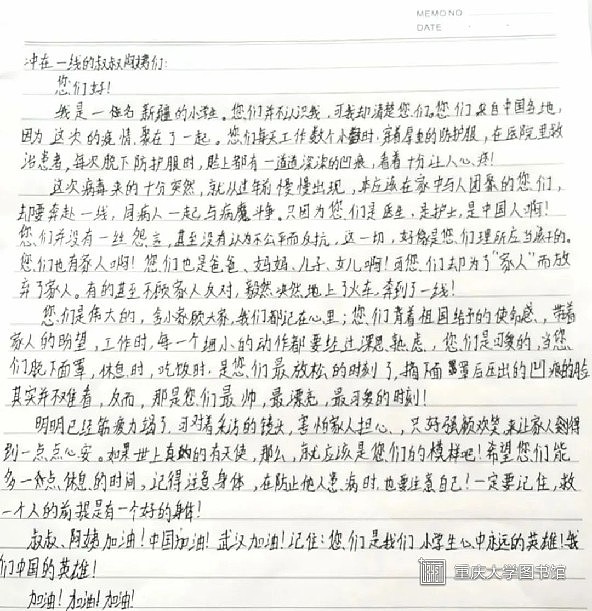 MEMO NO
DATE
冲在一线的叔叔阿姨们:
您们好!
我是一位名新疆的小学生。您们并不认识我,可我却清楚您们。您们来自中国各地,
因为这次的疫情,聚在了一起。您们每天工作数个小时,穿着厚重的防护服,在医院里救
治患者,每次脱下防护服时,脸上都有一道道深深的凹痕,看着十分让人心疼!
这次病毒来的十分突然,就从过年前慢慢出现,本应该在家中与人团聚的您们,
却要奔赴一线,同病人一起与病魔斗争。只因为您们是医生,是护士,是中国人啊!
您们并没有一丝怨言,甚至没有认为不公平而反抗,这一切,好像是您们理所应当该干的。
您们也有家人啊!您们也是爸爸、妈妈、儿子、女儿啊!可您们却为了“家人”而放
弃了家人。有的甚至不顾家人反对,毅然决然地上了火车,奔到了一线!
您们是伟大的,舍小家顾大家,我们都记在心里;您们背着祖国给予的使命感,带着
家人的盼望,工作时,每一个细小的动作都要经过深思熟虑,您们是可爱的,当您
们脱下面罩,休息时,吃饭时,是您们最放松的时刻了,摘下面罩后压出的凹痕的脸
其实并不难看,反而,那是您们最帅,最漂亮,最可爱的时刻!
明明已经筋疲力竭了,可对着采访的镜头,害怕家人担心,只好强颜欢笑,来让家人感得
到一点点心安。如果世上真的有天使,那么,就应该是您们的模样吧!希望您们能
多一点休息的时间,记得注意身体,在防止他人患病时,也要注意自己!一定要记住,救
一个人的前提是有一个好的身体!
叔叔、阿姨加油!中国加油!武汉加油!记住:您们是我们小学生心中永远的英雄!我
们中国的英雄!
加油!加油!加油!
重庆大学图书馆